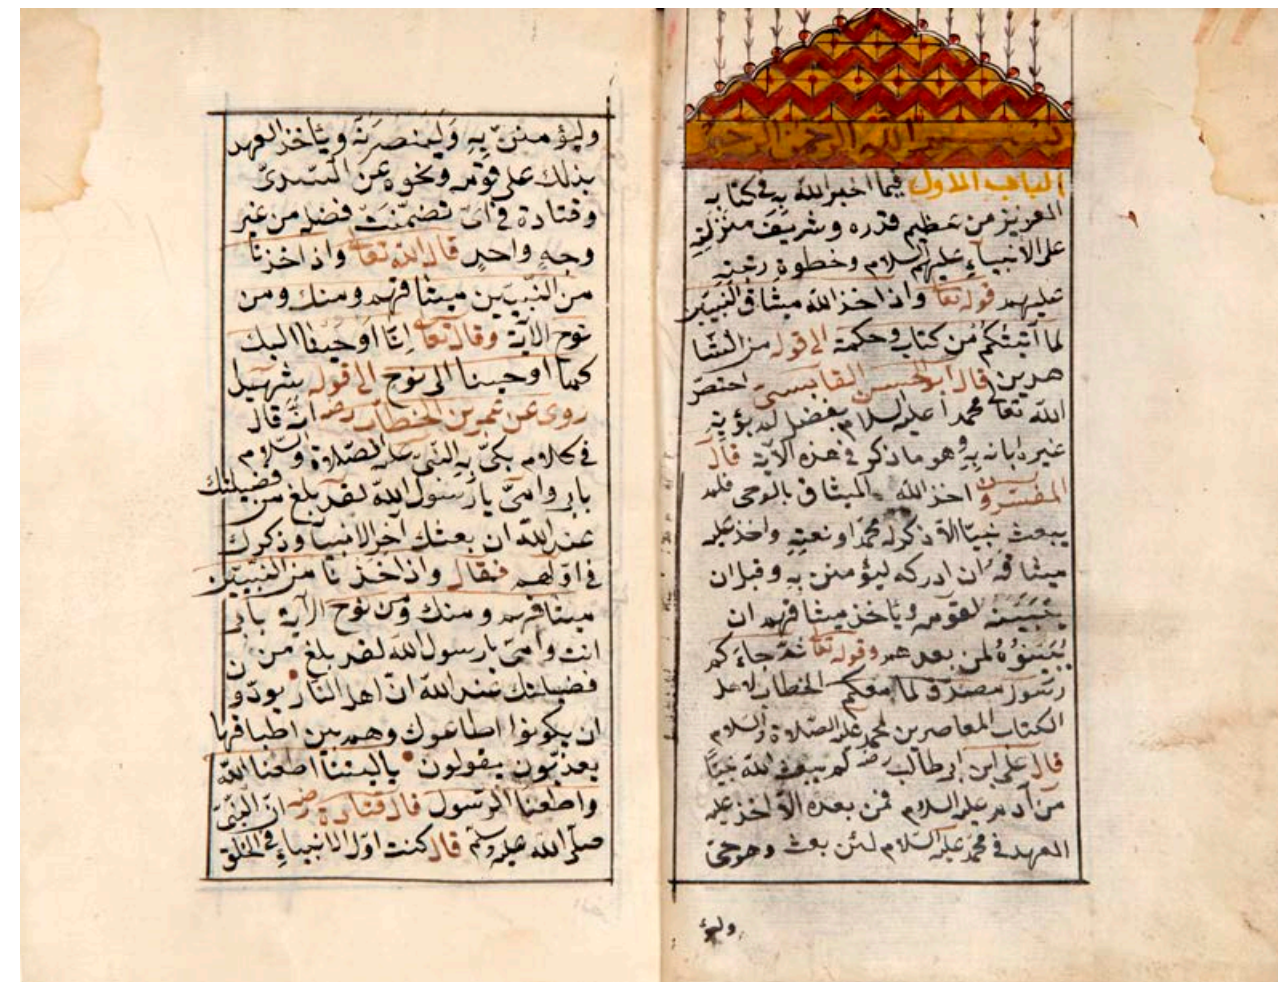 بسم الله الرحمن الرحيم
الباب الاول فيما اخبر الله به في كتابه
العزيز من عظيم قدره وشريف منزلته
على الانبياء عليهم السلام وخطوة رتبته
عليهم قوله تعا واذ اخذ الله ميثاق النبيين
لما آتيتكم من كتاب وحكمة الى قوله من الشا
هدين قال ابو الحسن القابسى اختصّ
الله تعالى محمدا عليه السلام بفضل لم يؤته
غيره ابانه به وهو ما ذكر في هذه الآية قال
المفسرون اخذ الله الميثاق بالوحى فلم
يبعث نبيّا الا ذكر له محمدا ونعته واخذ عليه
ميثاقه ان ادركه ليؤمنن به وقيل ان
يبيّنه لقومه وياخذ ميثاقهم ان
يبيّنوه لمن بعدهم وقوله تعا ثم جاءكم
رسول مصدق لما معكم الخطاب لاهل
الكتاب المعاصرين لمحمد عليه الصلاة والسلام
قال على ابن ابى طالب رضه لم يبعث الله نبيّا
من آدم عليه السلام فمن بعده الا اخذ عليه
العهد في محمد عليه السلام لئن بعث وهو حىّ
وليؤ
وليؤمننّ به وَلَيَنصرَنّه وياخذ العهد
بذلك على قومه ونحوه عن السّدىّ
وقتادة في اىّ تضمّنت فضله من غير
وجهٍ واحدٍ قال الله تعا واذ اخذنا
من النّبيّين ميثاقهم ومنك ومن
نوح الآية وقال تعا انّا اوحينا اليك
كما اوحينا الى نوح الى قوله شهيدا
روى عن عمر بن الخطاب رضه انّه قال
في كلام بكى به النبىّ عليه الصّلاة والسّلام
بابى وامىّ يا رسول الله لقد بلغ من فضيلتك
عند الله ان بعثك آخر الانبيآ وذكرك
في اوّلهم فقال واذ اخذنا من النبيّين
ميثاقهم ومنك ومن نوح الآية بابى
انت وامىّ يا رسول الله لقد بلغ من
فضيلتك عند الله انّ اهل النار يودّون
ان يكونوا اطاعوك وهم بين اطباقها
يعذّبون يقولون ياليتنا اطعنا الله
واطعنا الرسول قال قتادة رضه انّ النبىّ
صلى الله عليه وسلم قال كنت اوّل الانبياءِ في الخلق